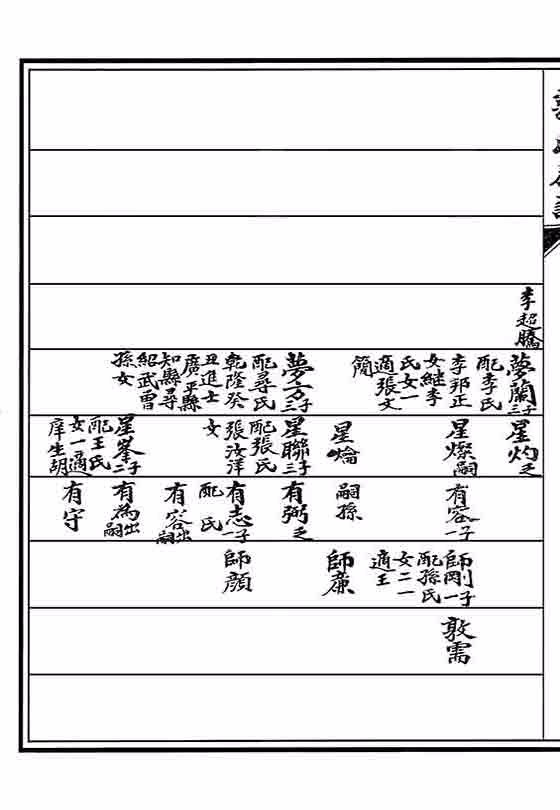 李超騰
夢蘭三子
配李氏
李邦正
女継李
氏女一
適張文
簡
夢方三子
配尋氏
乾隆癸
丑進士
廣平縣
知縣尋
紹武曾
孫女
星灼乏
星燦嗣
星爚
星聯三子
配張氏
張汝洋
女
星峯二子
配王氏
女一適
庠生胡
有容一子
嗣孫
有弼乏
有志一子
配 氏
有容出嗣
有為出嗣
有守
師剛一子
配孫氏
女二一
適王
師廉
師顔
敦需